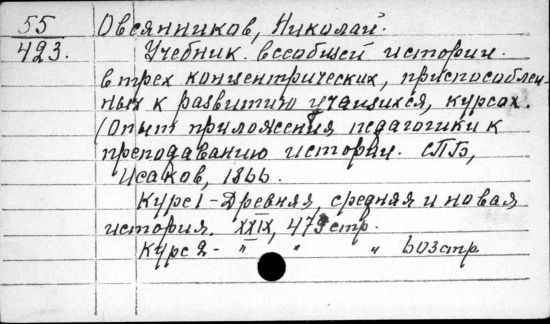 55 Овсянников, Николай.
423. Учебник всеобщей истории.
в трех концентрических, приспособлен-
ных к развитию учащихся, курсах.
(Опыт приложения педагогики к
преподаванию истории. СПБ,
Исаков, 1866.
Курс 1 - Древняя, средняя и новая
история. XXIX, 479 стр.
Курс 2 - " " " 603 стр